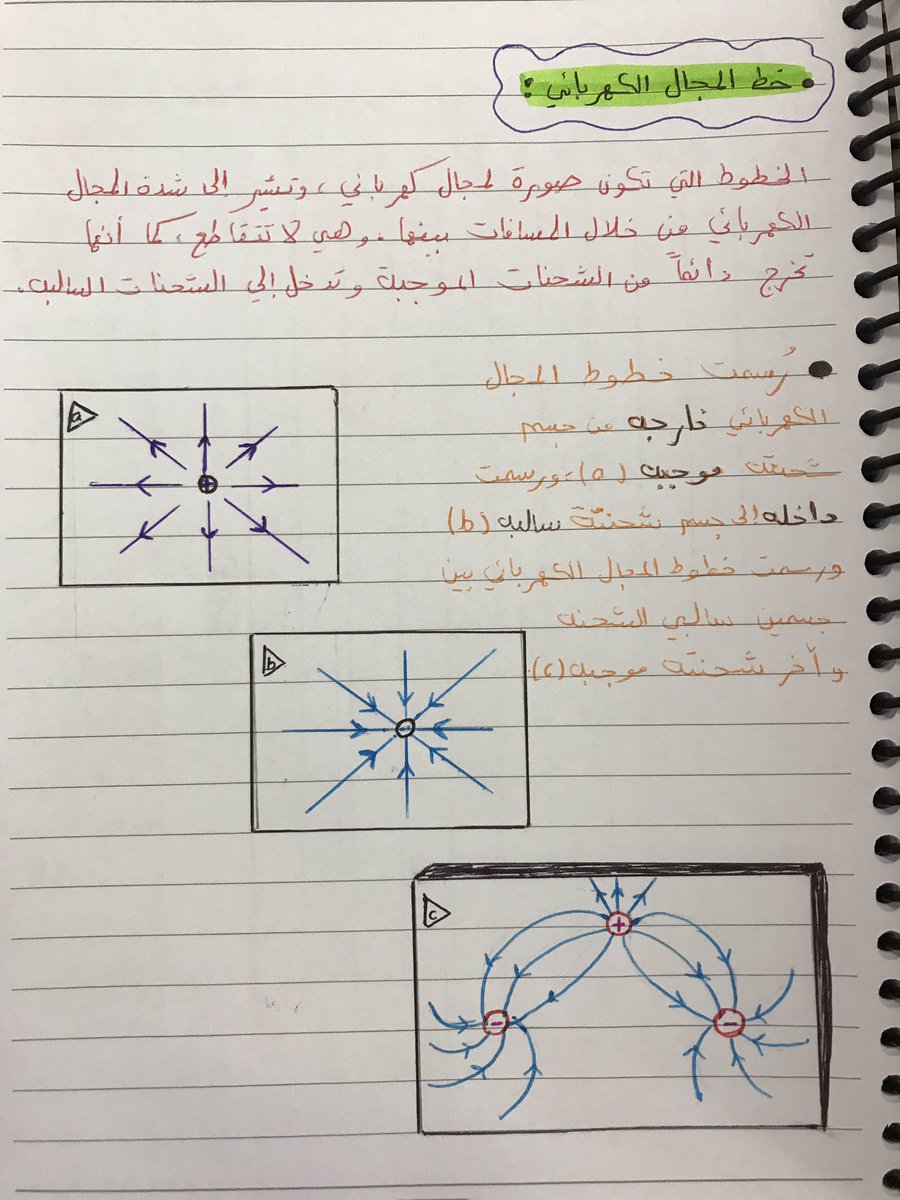 • خط المجال الكهربائي :
الخطوط التي تكون صورة لمجال كهربائي ، وتشير الى شدة المجال
الكهربائي من خلال المسافات بينها . وهي لا تتقاطع ، كما أنها
تخرج دائماً من الشحنات الموجبة وتدخل إلي الشحنات السالبه .
● رُسمت خطوط المجال
الكهربائي خارجه من جسم
شحنته موجبه (a) ، ورسمت
داخله إلى جسم شحنتة سالبه (b)
ورسمت خطوط المجال الكهربائي بين
جسمين سالبي الشحنه
وأخر شحنته موجبه (c).
a
+
b
-
c
+
- -